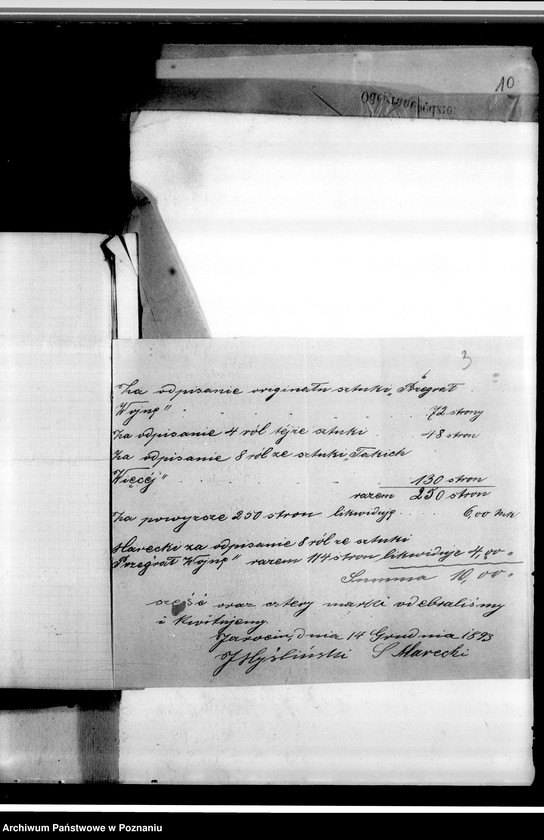 10
3
Za odpisanie originału sztuki „Przegrał
Wojnę" . . . . 72 strony
Za odpisanie 4 ról téjże sztuki . . 48 stron
Za odpisanie 8 ról ze sztuki „Takich
Więcéj" . . . . 130 stron
razem 250 stron
Za powyższe 250 stron likwiduję . . . 6,00 Mrk
Marecki za odpisanie 8 ról ze sztuki
Przegrał Wojnę" razem 114 stron likwiduje 4,00 "
Summa 10,00 "
sześć oraz cztery marki odebraliśmy
i kwitujemy.
Jarocin, dnia 14 Grudnia 1893
J Myśliński S Marecki
Archiwum Państwowe w Poznaniu